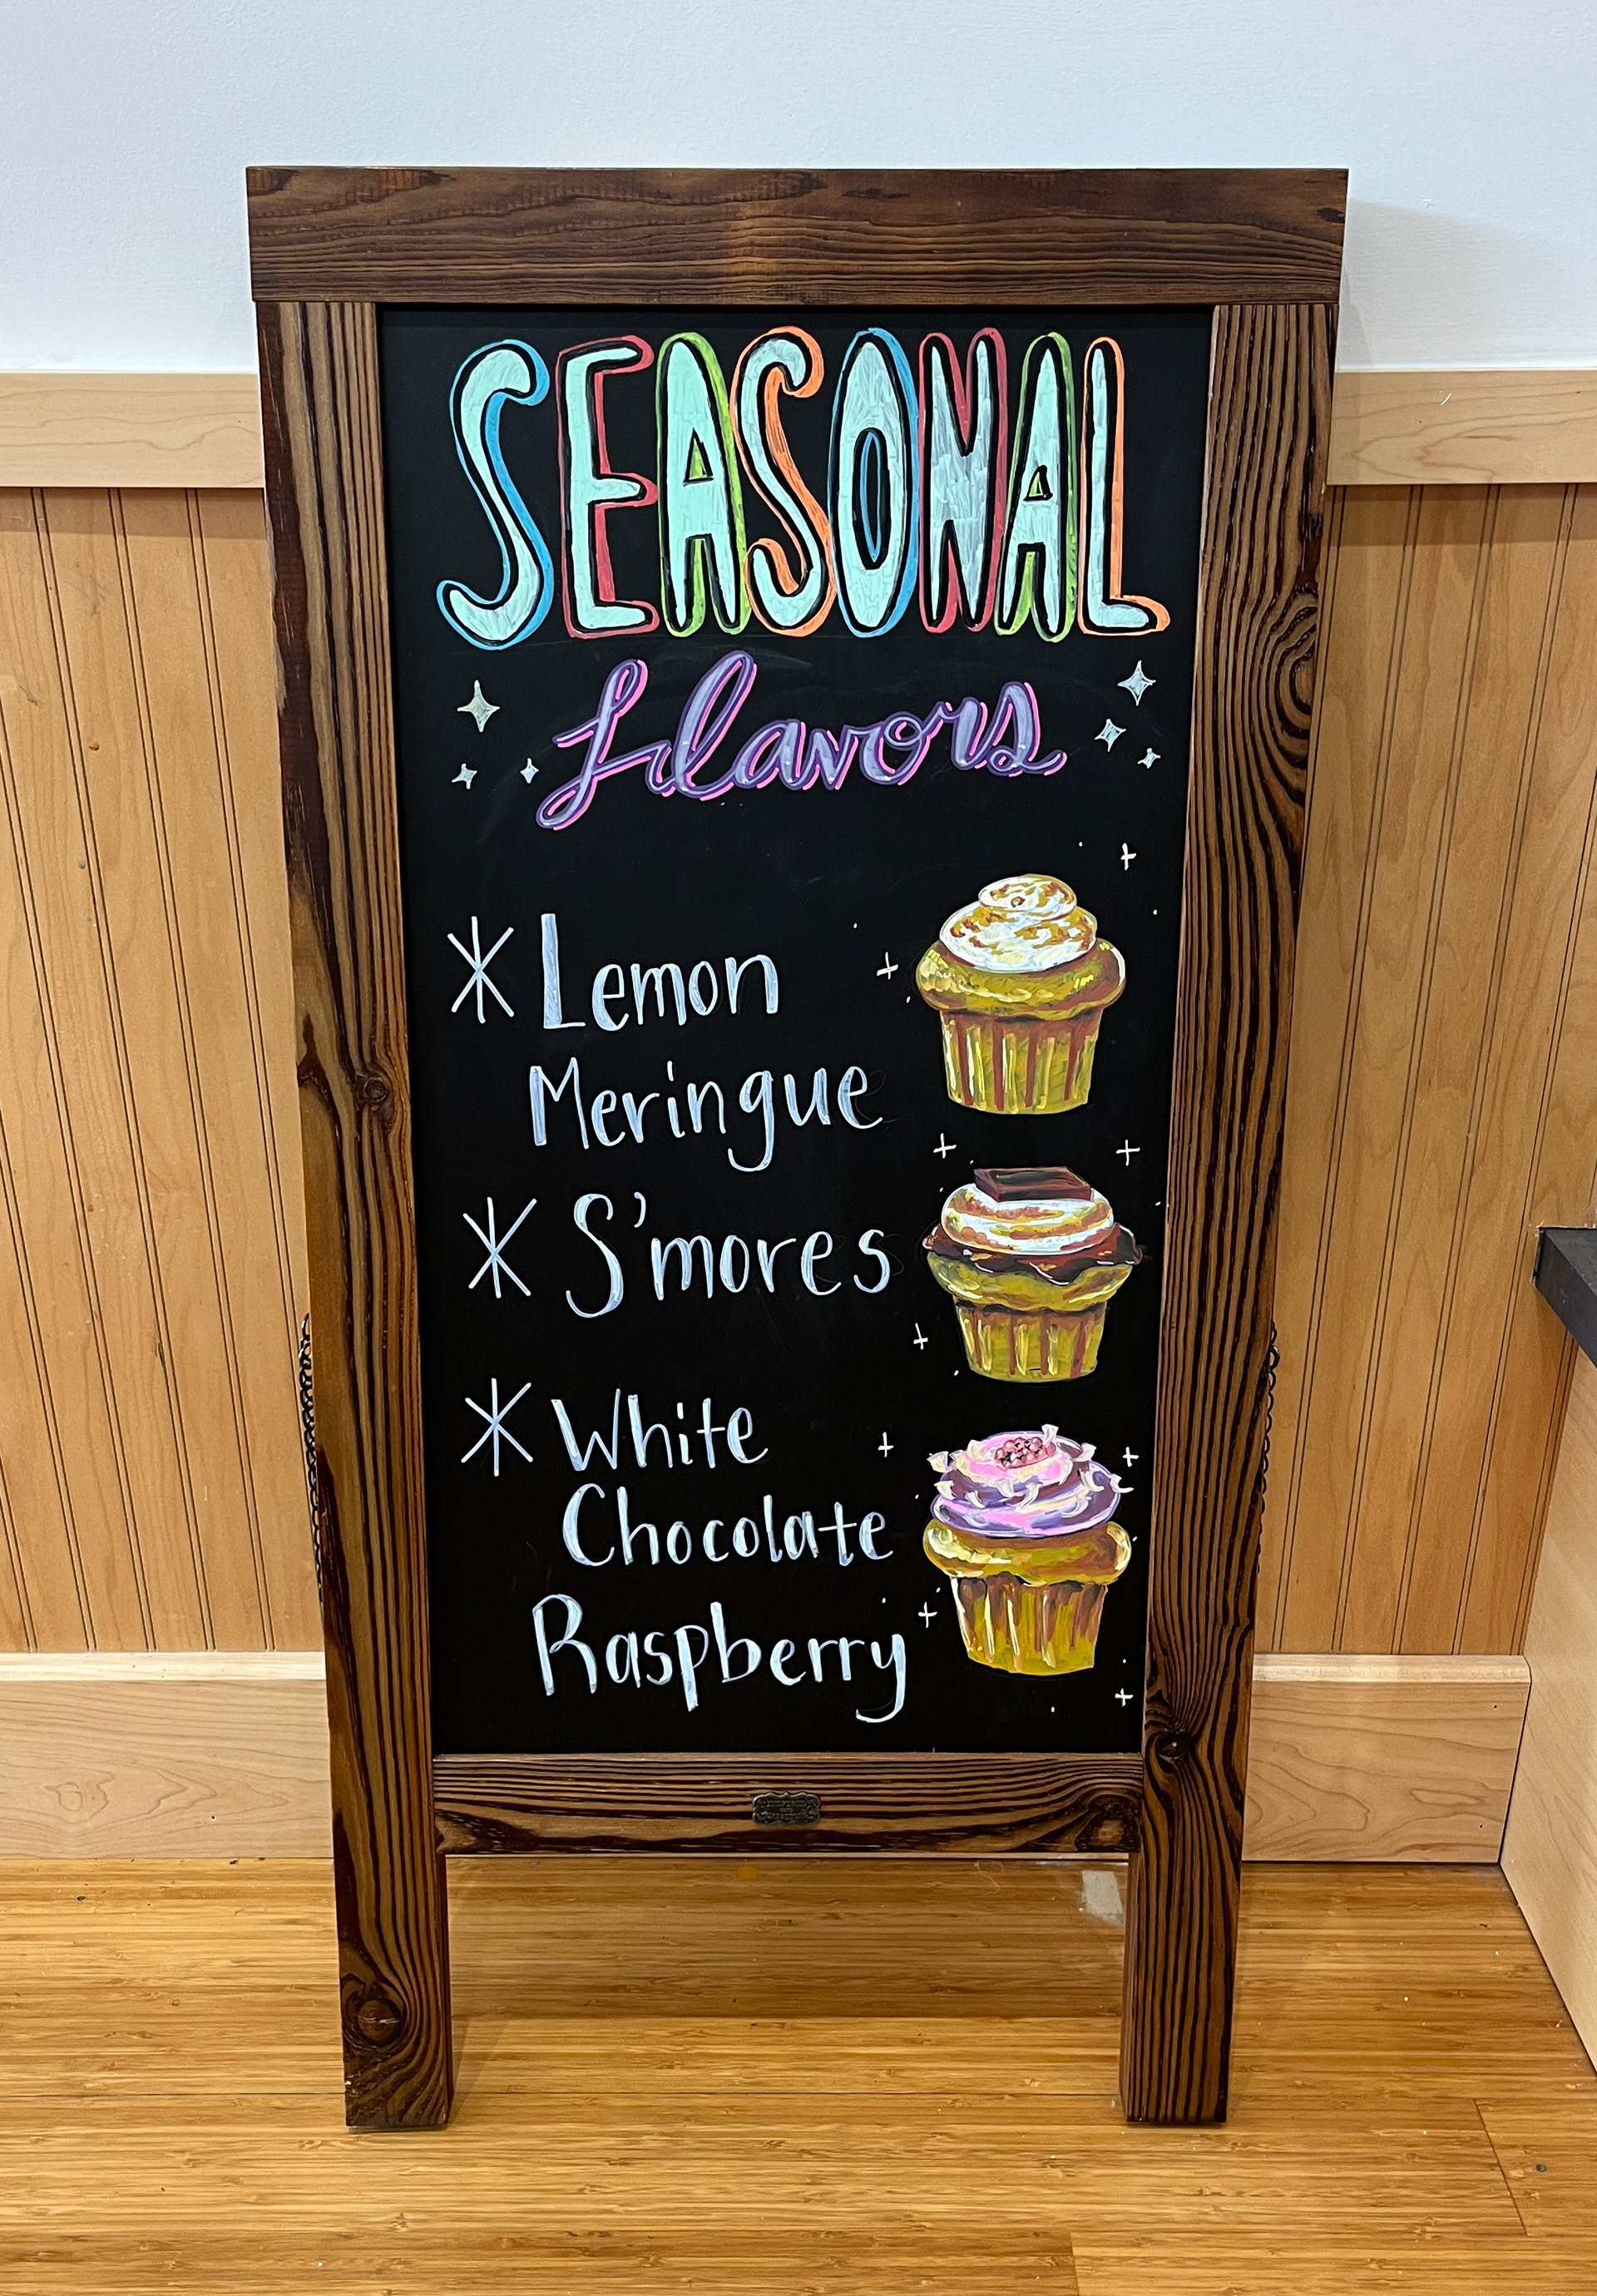 SEASONAL
Flavors
* Lemon
Meringue
* S'mores
* White
Chocolate
Raspberry